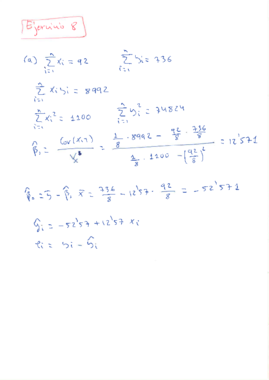 Ejercicio 8
(a) ∑_{i=1}^{n} xi = 92    ∑_{i=1}^{n} yi = 736
∑_{i=1}^{n} xi yi = 8992
∑_{i=1}^{n} xi² = 1100    ∑_{i=1}^{n} yi² = 74824
β̂₁ = Cov(x,y) / Vx = (1/8 · 8992 − 92/8 · 736/8) / (1/8 · 1100 − (92/8)²) = 12'571
β̂₀ = ȳ − β̂₁ x̄ = 736/8 − 12'57 · 92/8 = −52'571
ŷi = −52'57 + 12'57 xi
ei = yi − ŷi